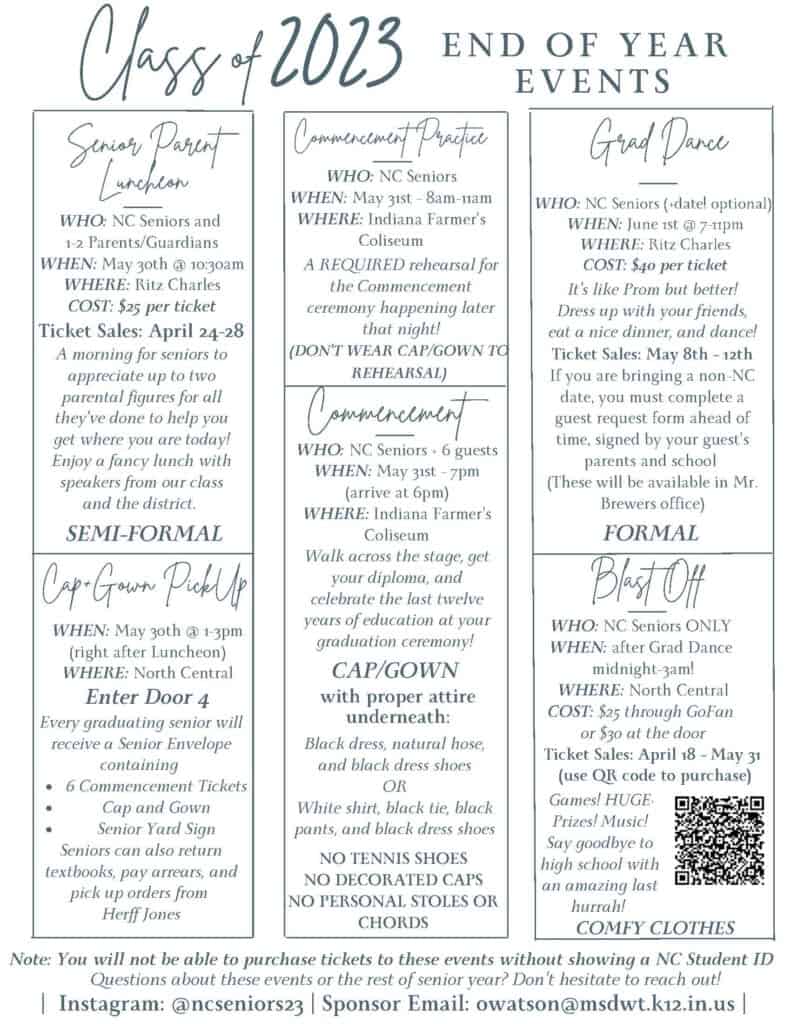 Class of 2023
END OF YEAR
EVENTS
Senior Parent
Luncheon
WHO: NC Seniors and
1-2 Parents/Guardians
WHEN: May 30th @ 10:30am
WHERE: Ritz Charles
COST: $25 per ticket
Ticket Sales: April 24-28
A morning for seniors to
appreciate up to two
parental figures for all
they've done to help you
get where you are today!
Enjoy a fancy lunch with
speakers from our class
and the district.
SEMI-FORMAL
Cap+Gown PickUp
WHEN: May 30th @ 1-3pm
(right after Luncheon)
WHERE: North Central
Enter Door 4
Every graduating senior will
receive a Senior Envelope
containing
• 6 Commencement Tickets
• Cap and Gown
• Senior Yard Sign
Seniors can also return
textbooks, pay arrears, and
pick up orders from
Herff Jones
Commencement Practice
WHO: NC Seniors
WHEN: May 31st - 8am-11am
WHERE: Indiana Farmer's
Coliseum
A REQUIRED rehearsal for
the Commencement
ceremony happening later
that night!
(DON'T WEAR CAP/GOWN TO
REHEARSAL)
Commencement
WHO: NC Seniors + 6 guests
WHEN: May 31st - 7pm
(arrive at 6pm)
WHERE: Indiana Farmer's
Coliseum
Walk across the stage, get
your diploma, and
celebrate the last twelve
years of education at your
graduation ceremony!
CAP/GOWN
with proper attire
underneath:
Black dress, natural hose,
and black dress shoes
OR
White shirt, black tie, black
pants, and black dress shoes
NO TENNIS SHOES
NO DECORATED CAPS
NO PERSONAL STOLES OR
CHORDS
Grad Dance
WHO: NC Seniors (+date! optional)
WHEN: June 1st @ 7-11pm
WHERE: Ritz Charles
COST: $40 per ticket
It's like Prom but better!
Dress up with your friends,
eat a nice dinner, and dance!
Ticket Sales: May 8th - 12th
If you are bringing a non-NC
date, you must complete a
guest request form ahead of
time, signed by your guest's
parents and school
(These will be available in Mr.
Brewers office)
FORMAL
Blast Off
WHO: NC Seniors ONLY
WHEN: after Grad Dance
midnight-3am!
WHERE: North Central
COST: $25 through GoFan
or $30 at the door
Ticket Sales: April 18 - May 31
(use QR code to purchase)
Games! HUGE
Prizes! Music!
Say goodbye to
high school with
an amazing last
hurrah!
COMFY CLOTHES
Note: You will not be able to purchase tickets to these events without showing a NC Student ID
Questions about these events or the rest of senior year? Don't hesitate to reach out!
| Instagram: @ncseniors23 | Sponsor Email: owatson@msdwt.k12.in.us |